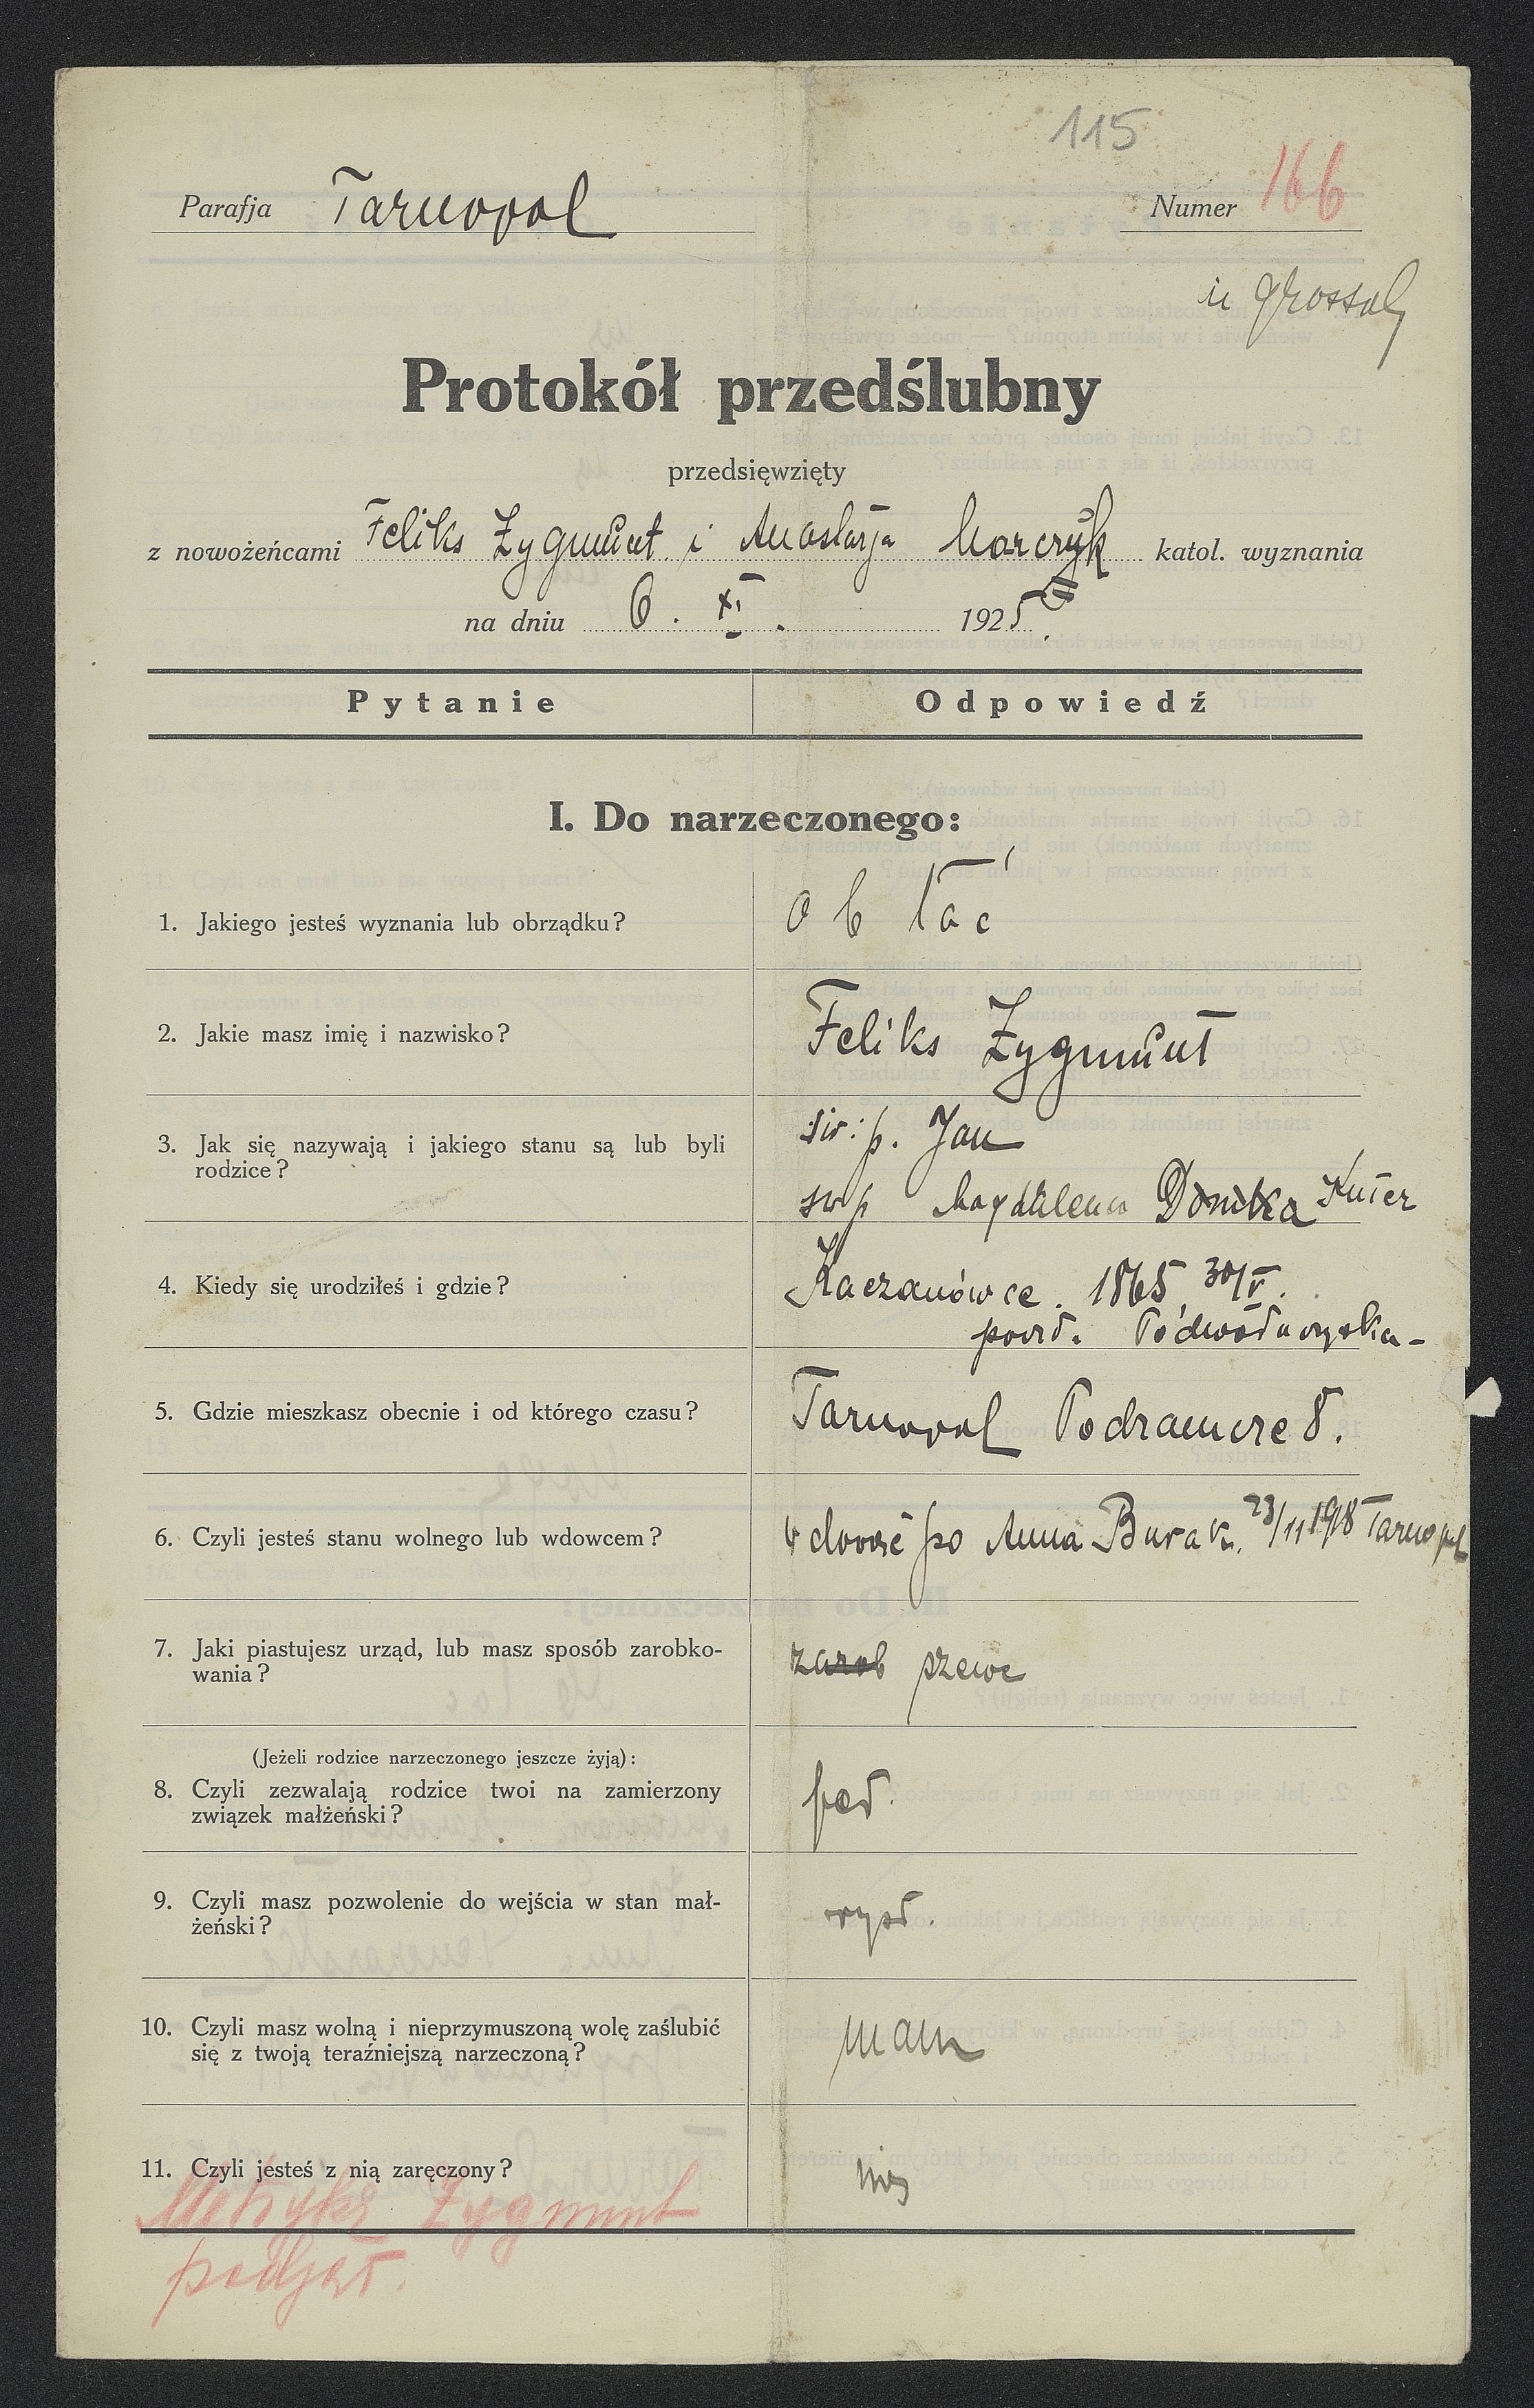 115
Parafja Tarnopol
Numer 166
Protokół przedślubny
przedsięwzięty
z nowożeńcami Feliks Zygmunt i Anastazja katol. wyznania
na dniu 6. XI. 1925
Pytanie Odpowiedź
I. Do narzeczonego:
1. Jakiego jesteś wyznania lub obrządku?
ob łać
2. Jakie masz imię i nazwisko?
Feliks Zygmunt
3. Jak się nazywają i jakiego stanu są lub byli
rodzice?
św: p. Jan
św p Magdalena
4. Kiedy się urodziłeś i gdzie?
Kaczanówce. 1865 30/V.
Podwołoczyska-
5. Gdzie mieszkasz obecnie i od którego czasu?
Tarnopol Podzamcze 8.
6. Czyli jesteś stanu wolnego lub wdowcem?
wdowiec po Anna Burak. 23/11 1918 Tarnopol
7. Jaki piastujesz urząd, lub masz sposób zarobko-
wania?
zarob szewc
(Jeżeli rodzice narzeczonego jeszcze żyją):
8. Czyli zezwalają rodzice twoi na zamierzony
związek małżeński?
9. Czyli masz pozwolenie do wejścia w stan mał-
żeński?
10. Czyli masz wolną i nieprzymuszoną wolę zaślubić
się z twoją teraźniejszą narzeczoną?
mam
11. Czyli jesteś z nią zaręczony?
Metrykę Zygmunt
podjął.